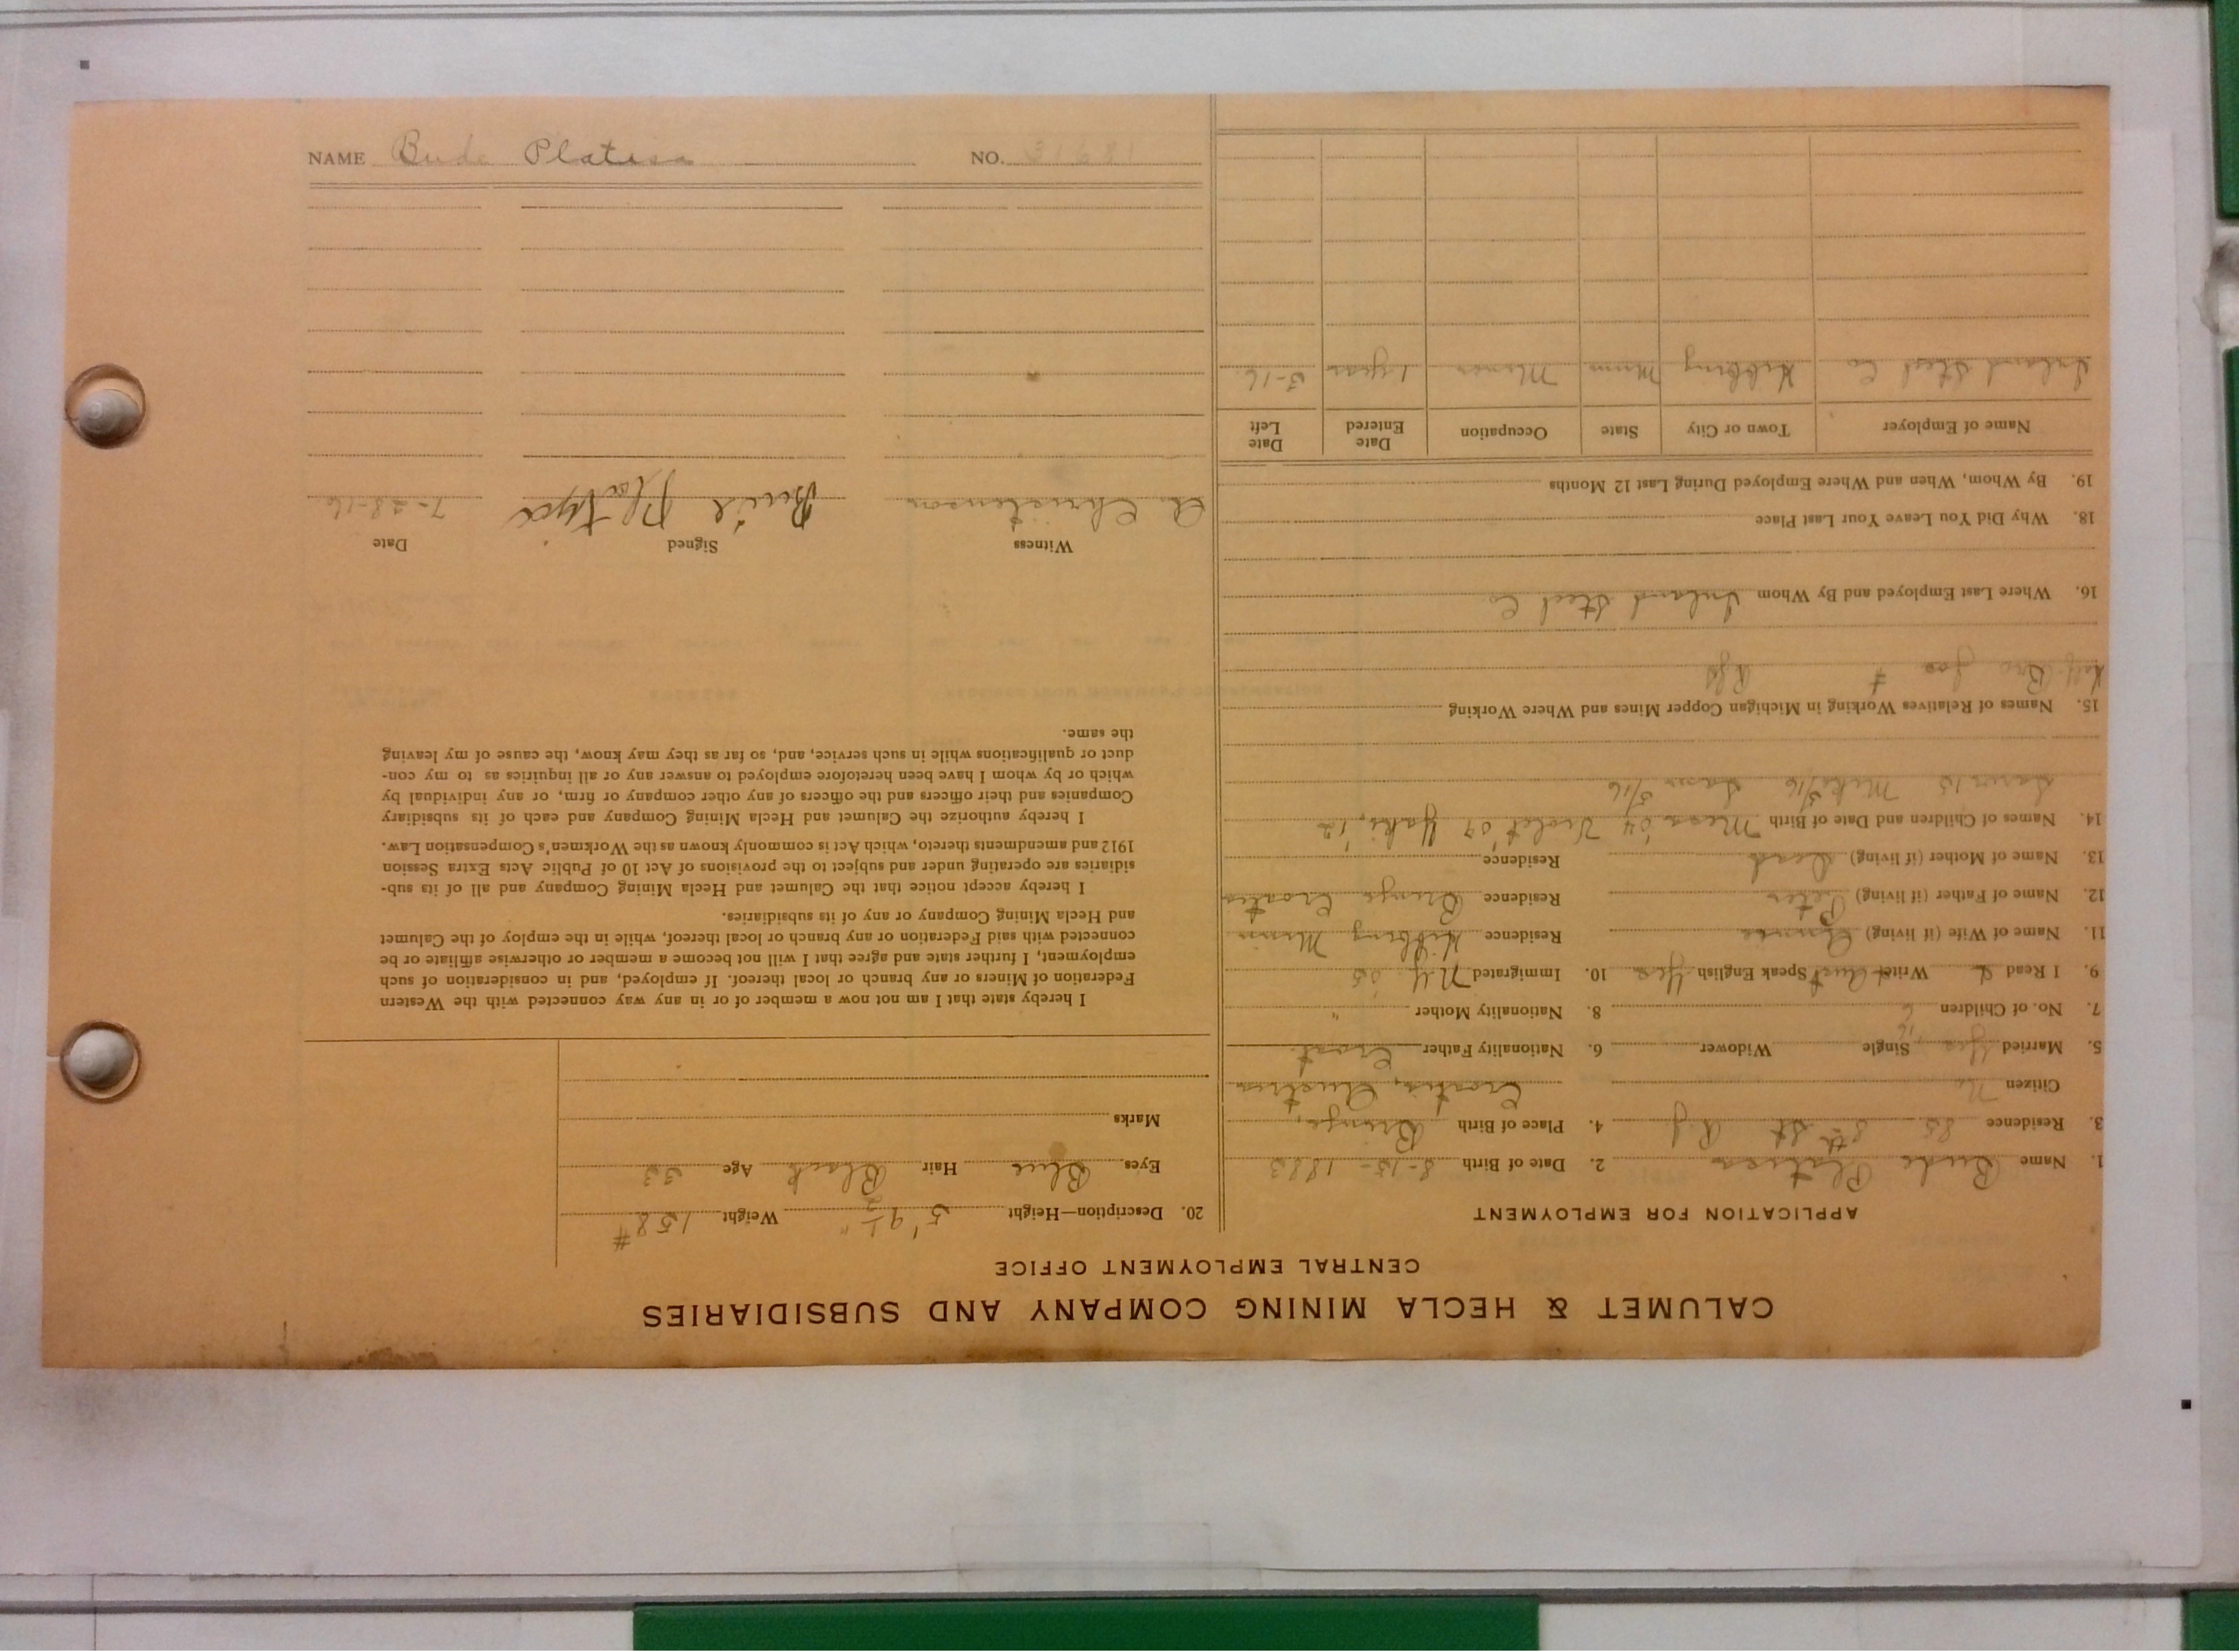 CALUMET & HECLA MINING COMPANY AND SUBSIDIARIES
CENTRAL EMPLOYMENT OFFICE
APPLICATION FOR EMPLOYMENT
1. Name Bude Platisa 2. Date of Birth 8-15-1883
3. Residence 85 8th St 4. Place of Birth
Citizen No Croatia, Austria
5. Married Yes Single Widower 6. Nationality Father Croat
7. No. of Children 6 8. Nationality Mother "
9. I Read & Write Aust Speak English Yes 10. Immigrated N.Y.
11. Name of Wife (if living) Residence Hibbing Minn
12. Name of Father (if living) Peter Residence Croatia
13. Name of Mother (if living) Dead Residence
14. Names of Children and Date of Birth '04 Violet '07 '12
'15 Mike 5/16 5/16
15. Names of Relatives Working in Michigan Copper Mines and Where Working
Half Bro Joe #
16. Where Last Employed and By Whom Inland Steel Co
18. Why Did You Leave Your Last Place
19. By Whom, When and Where Employed During Last 12 Months
Name of Employer Town or City State Occupation Date Entered Date Left
Inland Steel Co Hibbing Minn Miner 1 year 3-16
20. Description—Height 5' 9½" Weight 158#
Eyes Blue Hair Black Age 33
Marks
I hereby state that I am not now a member of or in any way connected with the Western
Federation of Miners or any branch or local thereof. If employed, and in consideration of such
employment, I further state and agree that I will not become a member or otherwise affiliate or be
connected with said Federation or any branch or local thereof, while in the employ of the Calumet
and Hecla Mining Company or any of its subsidiaries.
I hereby accept notice that the Calumet and Hecla Mining Company and all of its sub-
sidiaries are operating under and subject to the provisions of Act 10 of Public Acts Extra Session
1912 and amendments thereto, which Act is commonly known as the Workmen's Compensation Law.
I hereby authorize the Calumet and Hecla Mining Company and each of its subsidiary
Companies and their officers and the officers of any other company or firm, or any individual by
which or by whom I have been heretofore employed to answer any or all inquiries as to my con-
duct or qualifications while in such service, and, so far as they may know, the cause of my leaving
the same.
Witness Signed Date
A. Christenson 7-28-16
NAME Bude Platisa NO. 31681